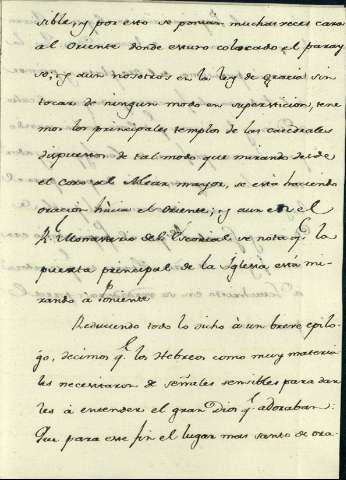 sible, y por esto se ponian muchas veces cara
al Oriente donde estuvo colocado el paray
so; y aun nosotros en la ley de gracia sin
tocar de ningun modo en supersticion, tene
mos los principales templos de las catedrales
dispuestos de tal modo que mirando desde
el coro al Altar mayor, se está haciendo
oracion hácia el Oriente; y aun en el
Rl Monasterio del Escorial se nota q.e la
puerta principal de la Iglesia está mi-
rando á Poniente
Reduciendo todo lo dicho á un breve epilo-
go, decimos q.e los Hebreos como muy materia
les necesitaron de señales sensibles para dar
les á entender el gran Dios q.e adoraban.
Que para este fin el lugar mas santo de ora-